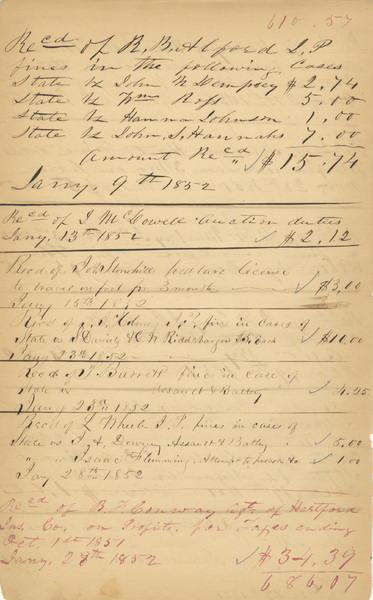 610.57
Recd of R. B. Alford J. P
fines in the following Cases
State vs John N Dempsey $2.74
State vs Wm Ross 5.00
State vs Hanna Johnson 1.00
State vs John S. Hannahs 7.00
Amount Recd $15.74
Jany. 9th 1852
Recd of J McDowell Auction duties
Jany. 13th 1852 $2.12
Recd of Peddlars License
to travel on foot for 3 months $3.10
Jany 15th 1852
Recd of J. P. fine in cases of
State vs & $10.00
Jany 23rd 1852
Recd of J. Barrett fine in case of
State vs Assault & Battery 4.25
Jany 23rd 1852
Recd of J. P. fines in cases of
State vs J. H. Downey Assault & Battery 5.00
" " Isaac Flemming. Attempt to 1.00
Jay 28th 1852
Recd of B. F. Conway agt. of Hartford
Ins. Co. on Profits. for Taxes ending
Oct. 1st 1851
Jany. 29th 1852 $34.39
686.07